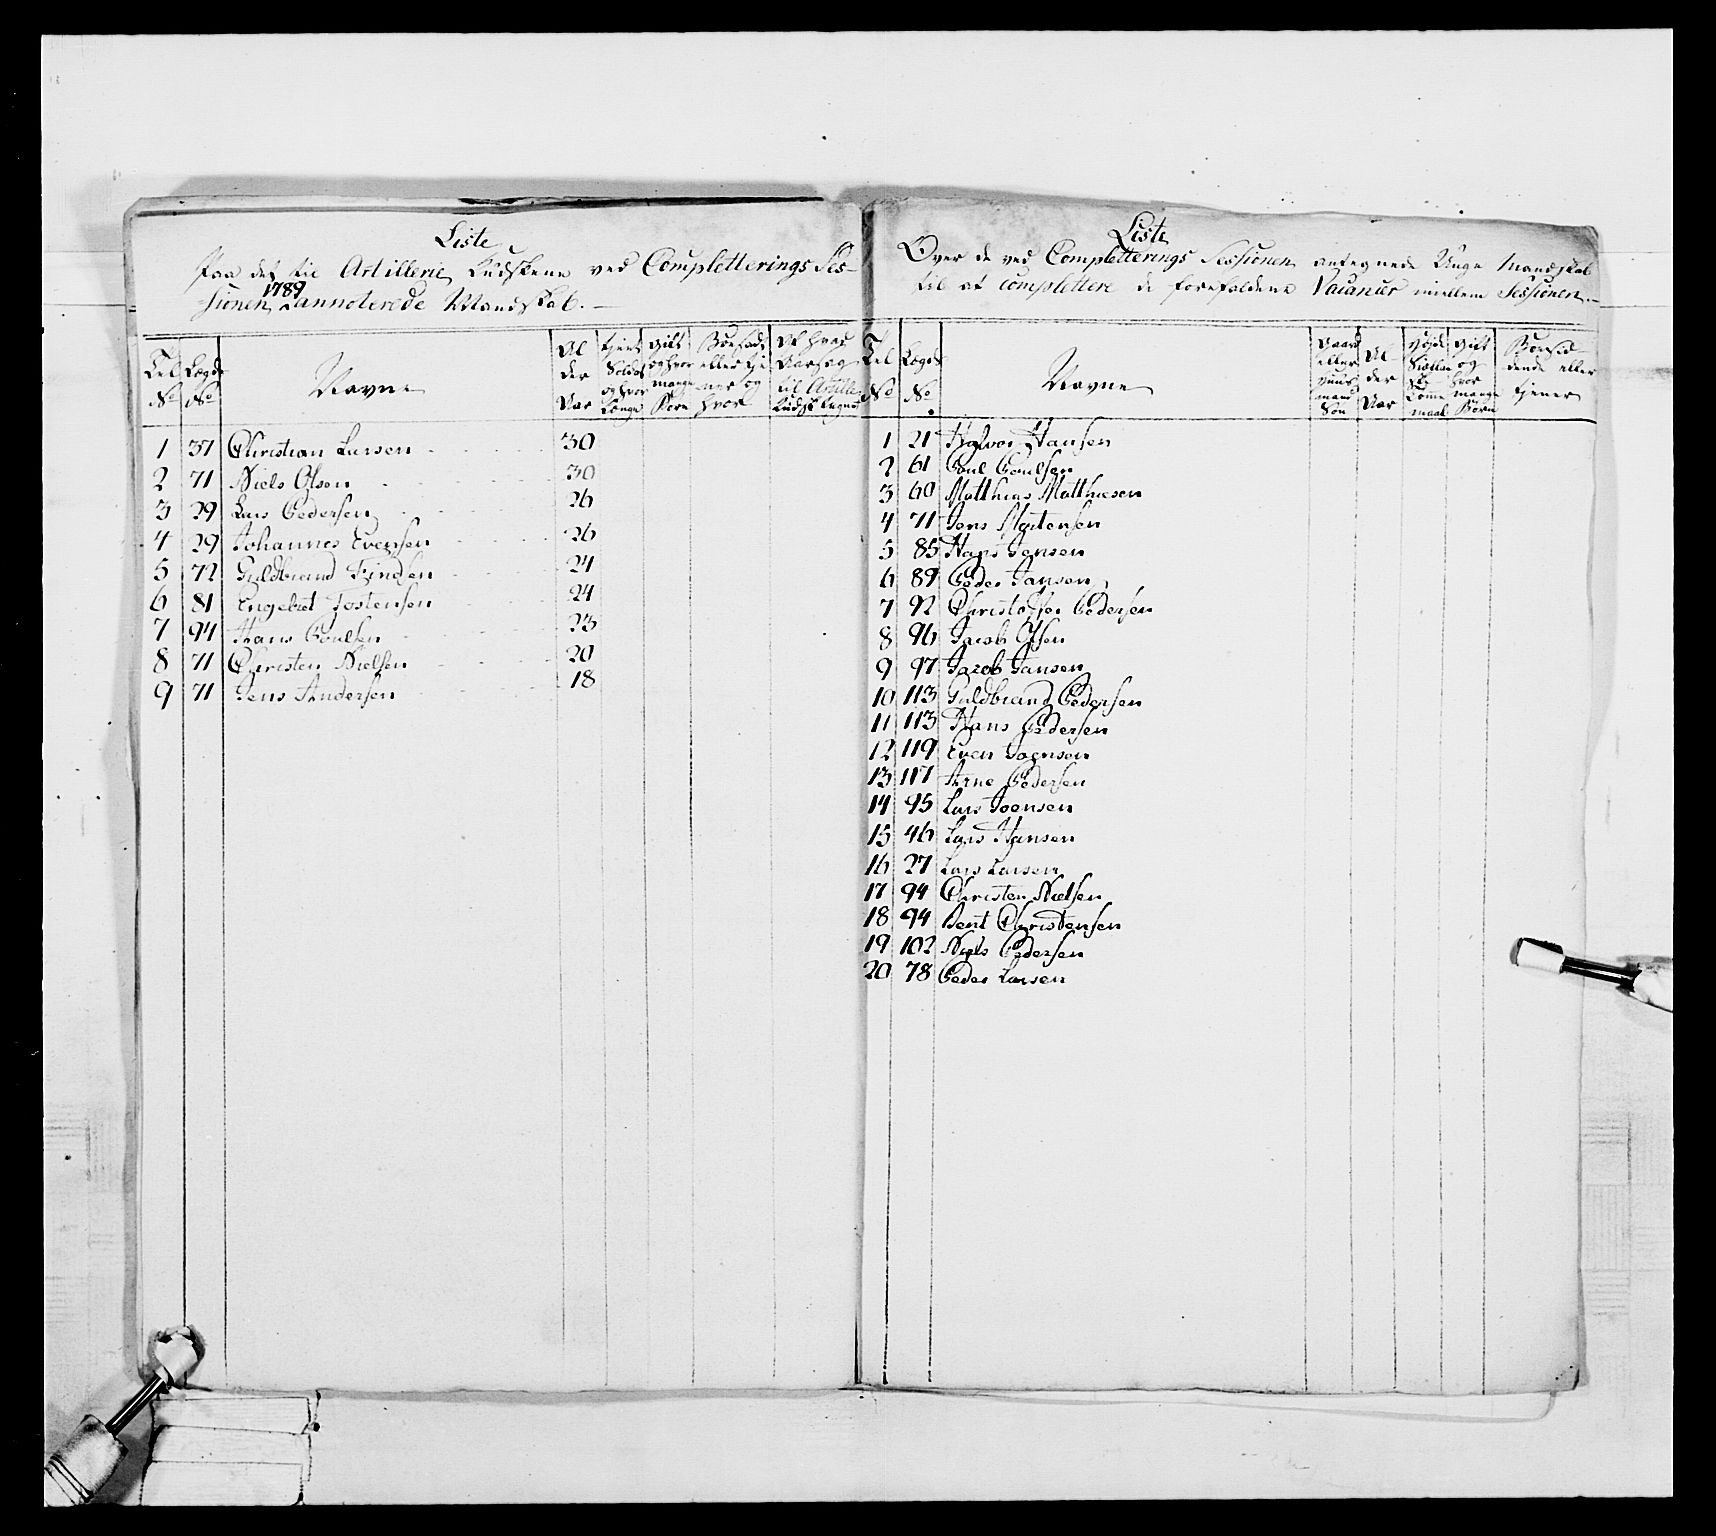 Liste
Paa det til Artillerie Kudskene ved Completterings Ses-
sionen 1789 annoterede Mandskab. -
Tel No
Lægds No
Navne
Al der Aar
tjent Soldat og hvor Længe
Gift og hvor mange Børn
Bønfødt eller tje ner og hvor
Af hvad Aarsag til Artille Kudsk tegnet
1 37 Christian Larsen 30
2 71 Niels Olsen 30
3 29 Lars Pedersen 26
4 29 Johannes Evensen 26
5 72 Guldbrand Findsen 24
6 81 Engebret Jostensen 24
7 94 Hans Poulsen 23
8 71 Christen Nielsen 20
9 71 Jens Andersen 18
Liste
Over de ved Completterings Sessionen antegnede Unge Mandskab
til at complettere de forefaldene Vacancer imellem Sessionen. -
Tel No
Lægds No
Navne
Gaard eller Huus mand Søn
Al der Aar
Høyde Siællandske Tomme maal
Gift og hvor mange Børn
Boesid dende eller tjener
1 21 Halvor Hansen
2 61 Poul Poulsen
3 60 Matthias Matthiesen
4 71 Jens Mortensen
5 85 Hans Jensen
6 89 Peder Jansen
7 92 Christopher Pedersen
8 96 Jacob Olsen
9 97 Jacob Jansen
10 113 Guldbrand Pedersen
11 113 Hans Pedersen
12 119 Even Joensen
13 117 Arne Pedersen
14 95 Lars Joensen
15 46 Lars Hansen
16 27 Lars Larsen
17 94 Christen Nielsen
18 94 Bent Christensen
19 102 Niels Pedersen
20 78 Peder Larsen